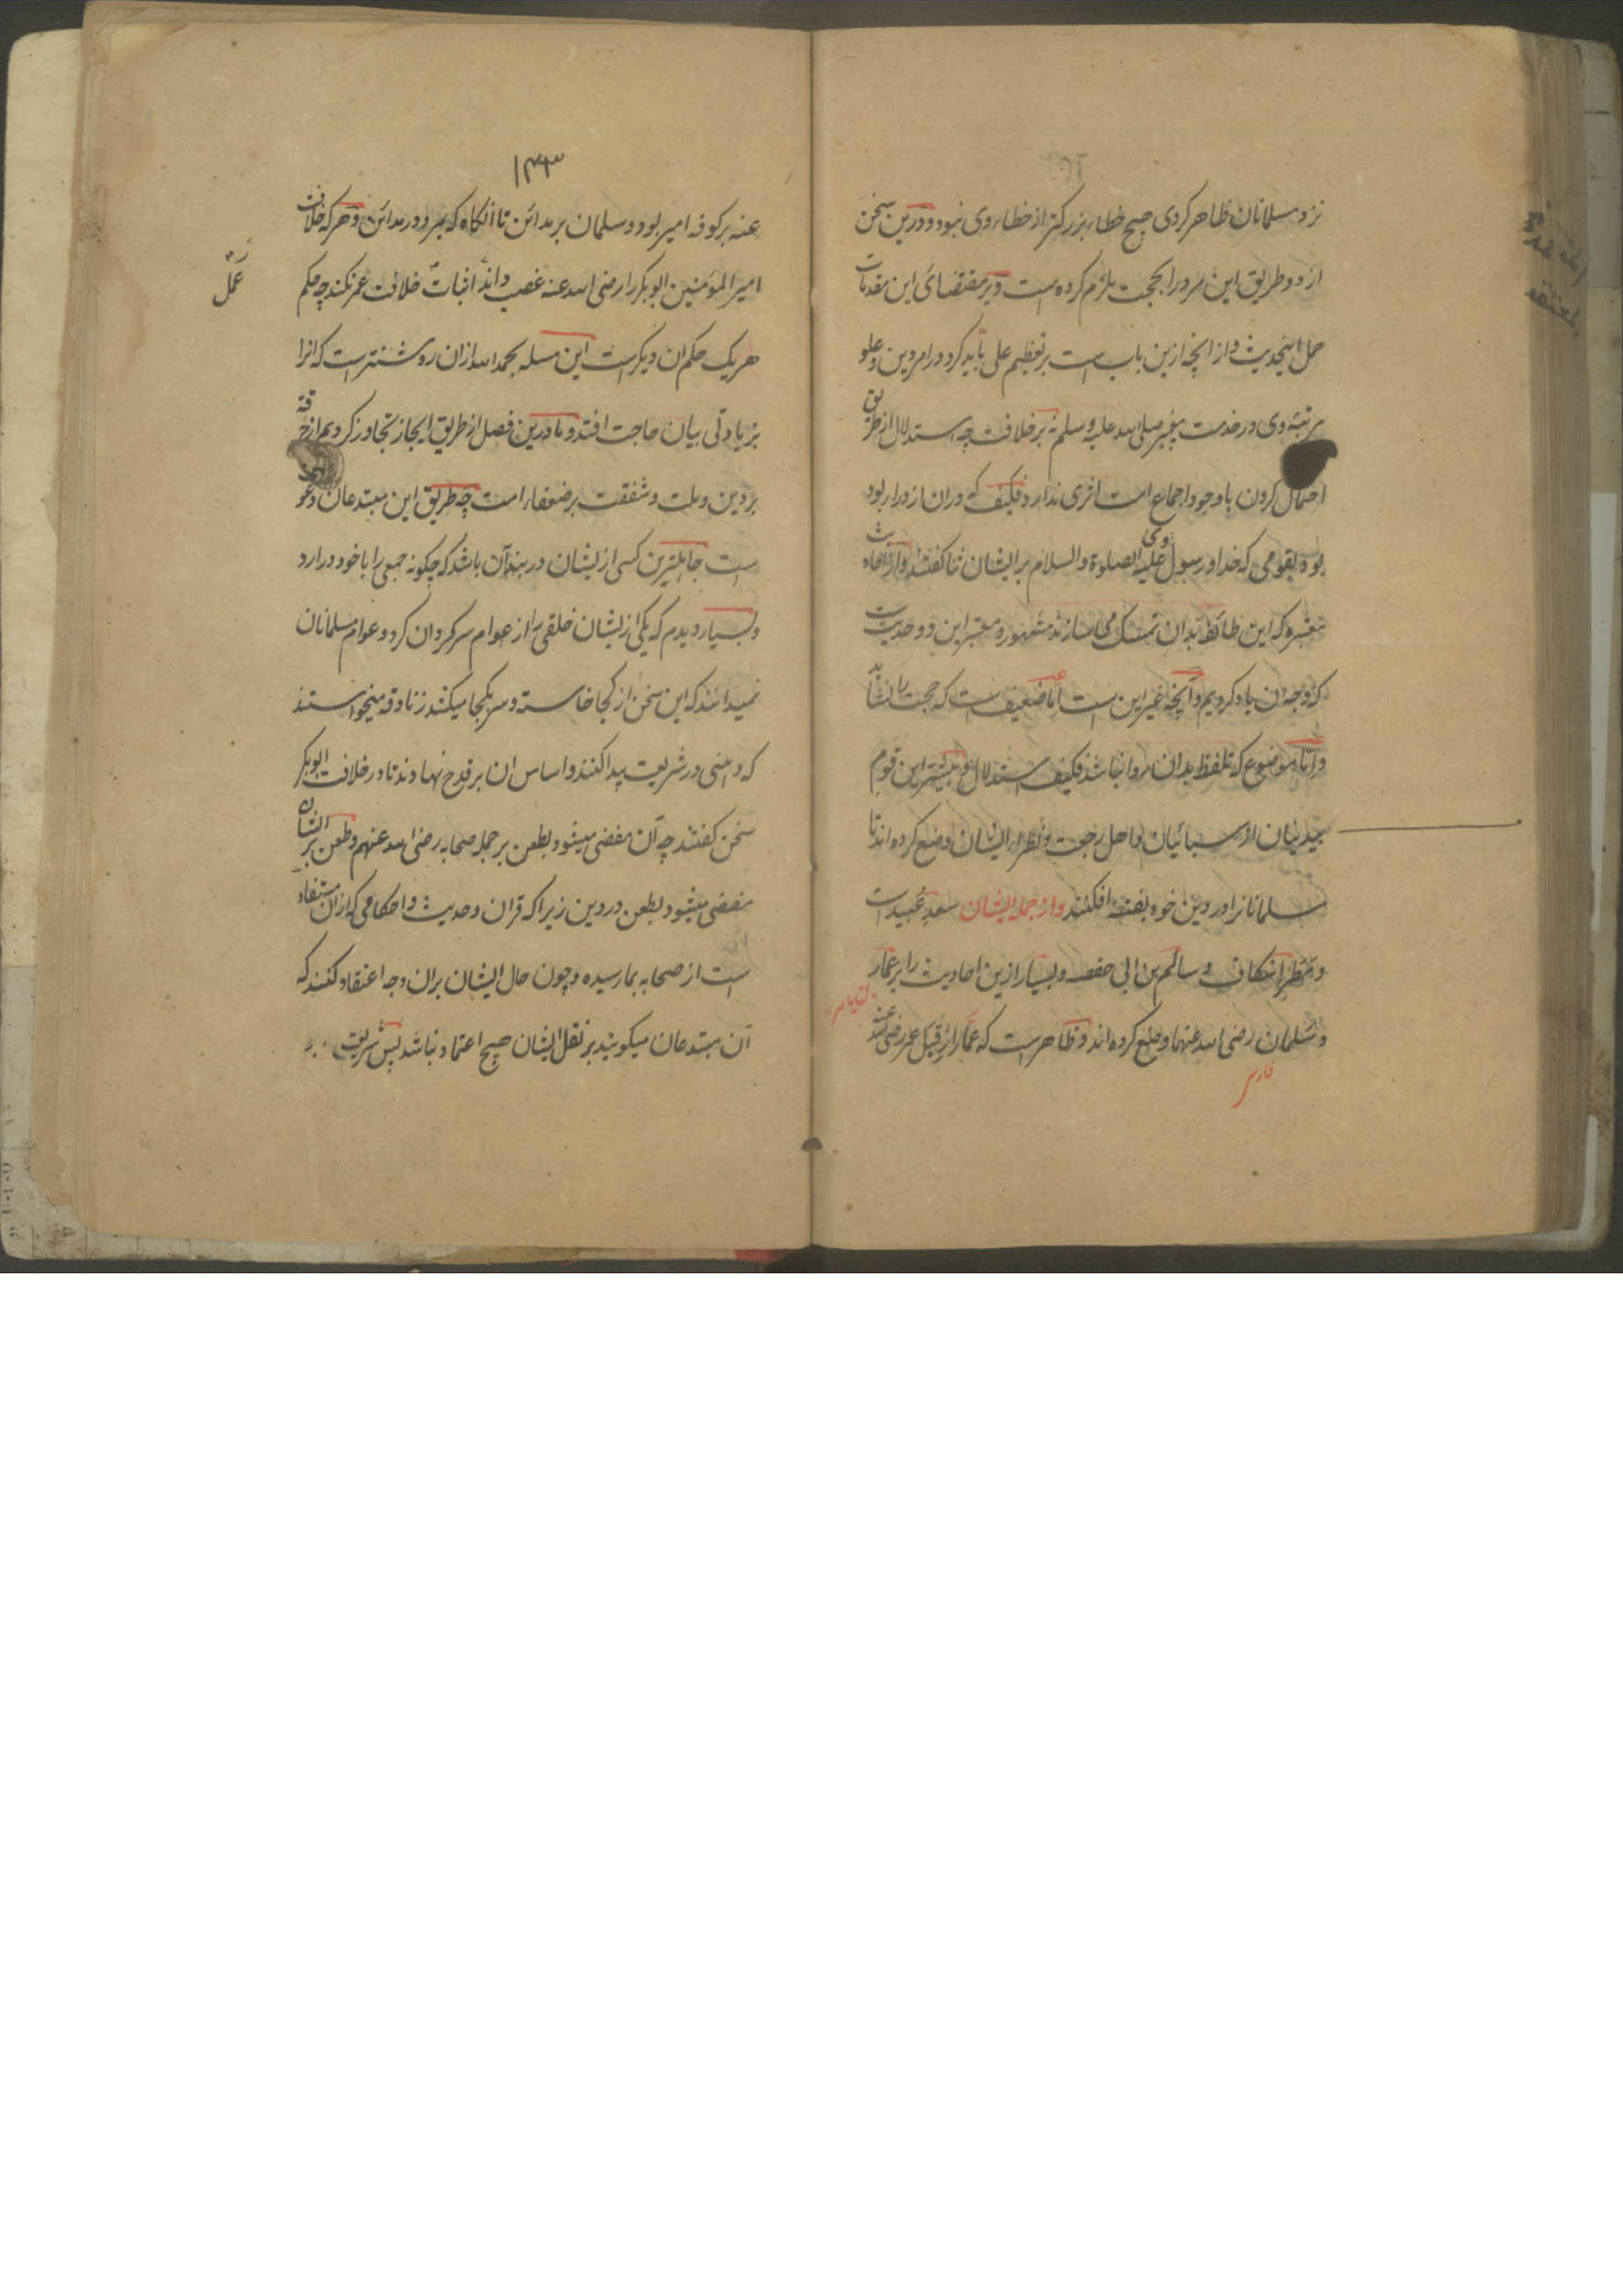 نزد مسلمانان ظاهر کردی هیچ خطاء بزرکتر از خطاء وی نبود و درین سخن
از دو طریق این مرد را بحجت ملزم کرده است و بر مقتضای این مقدمات
حمل این حدیث و از انچه ازین باب است بر تعظیم علی باید کرد در امر دین و علو
مرتبه وی در خدمت پیغمبر صلی الله علیه وسلم نه بر خلافت چه استدلال از طریق
احتمال کردن با وجود اجماع امت اثری ندارد فکیف که دران ازدرا بود
بود بقومی که خدا و رسول وی علیه الصلوة والسلام بر ایشان ثنا کفتند و از احادیث
معتبره که این طائفه بدان تمسک می سازند مشهور و معتبر این دو حدیث است
که وجه ان یاد کردیم و آنچه غیر این است اما ضعیف است که حجت را نشاید
و اما موضوع که تلفظ بدان روا نباشد فکیف استدلال و بیشتر این قوم
بیدینان از سبائیان و اهل رجعت و نظراء ایشان وضع کرده اند تا
مسلمانانرا در دین خود بفتنه افکنند و از جمله ایشان سعد
و سالم بن ابی حفصه و بسیار ازین احادیث را بر عمار
بن یاسر
و سلمان رضی الله عنهما وضع کرده اند و ظاهرست که عمار از قبل عمر رضی الله
فارسی
۱۴۳
عنه بر کوفه امیر بود و سلمان بر مدائن تا انکاه که بمرد در مدائن و هر که خلافت
امیر المؤمنین ابو بکر را رضی الله عنه غصب داند اثبات خلافت عمر نکند چه حکم
عمل
هر یک حکم ان دیکرست این مسله بحمد الله ازان روشنترست که انرا
بزیادتی بیان حاجت افتد و ما درین فصل از طریق ایجاز تجاوز کردیم از
بر دین و ملت و شفقت بر ضعفاء امت چه طریق این مبتدعان دعو
است جاهلترین کسی ازیشان در بند آن باشد که چکونه جمعی را با خود درارد
و بسیار دیدم که یکی ازیشان خلقی را از عوام سرکردان کرد و عوام مسلمانان
نمیدانند که این سخن از کجا خاسته و سر بکجا میکند زنادقه میخواستند
که وهنی در شریعت پیدا کنند و اساس ان بر قدح نهادند تا در خلافت ابوبکر
سخن کفتند چه آن مفضی میشود بطعن بر جمله صحابه رضی الله عنهم و طعن بر ایشان
مفضی میشود بطعن در دین زیرا که قران و حدیث و احکامی که ازان مستفاد
است از صحابه بما رسیده و چون حال ایشان بران وجه اعتقاد کنند که
آن مبتدعان میکویند بر نقل ایشان هیچ اعتماد نباشد پس شریعت